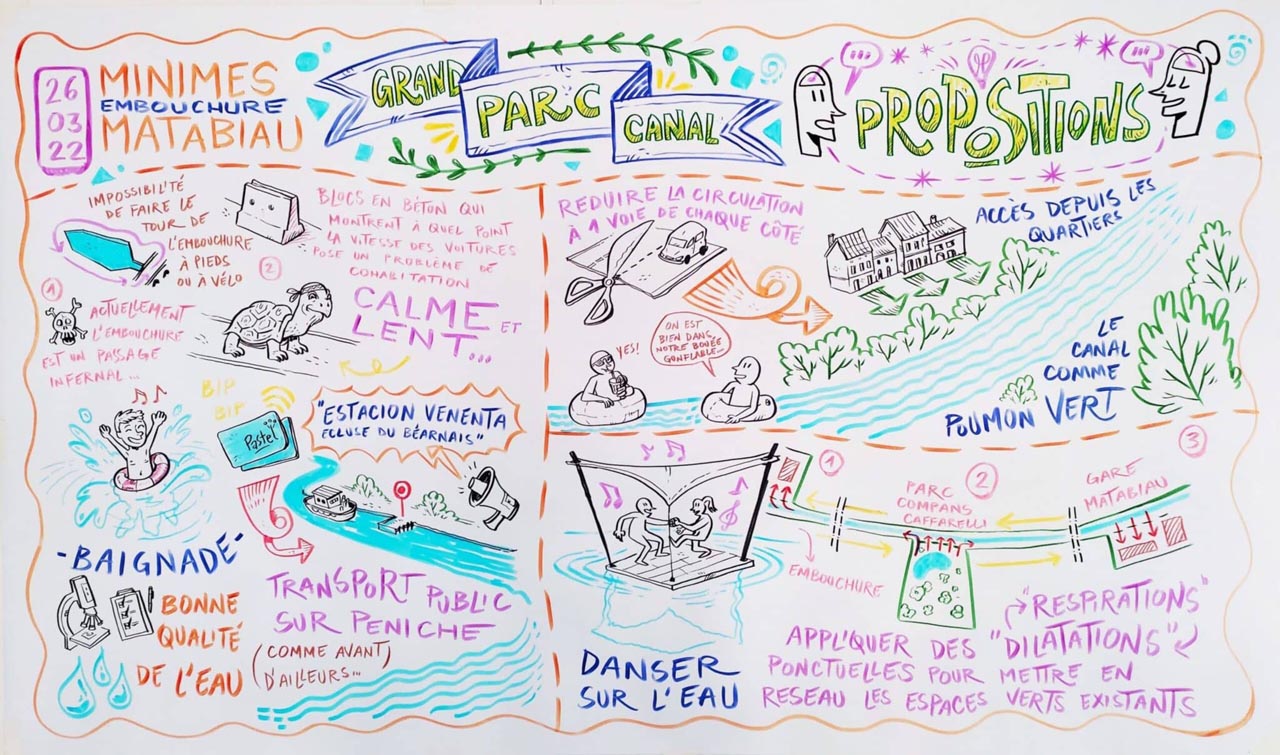 26
03
22
MINIMES
EMBOUCHURE
MATABIAU
GRAND
PARC
CANAL
PROPOSITIONS
IMPOSSIBILITÉ
DE FAIRE LE
TOUR DE
L'EMBOUCHURE
À PIEDS
OU À VÉLO
1
ACTUELLEMENT
L'EMBOUCHURE
EST UN PASSAGE
INFERNAL...
2
BLOCS EN BÉTON QUI
MONTRENT À QUEL POINT
LA VITESSE DES VOITURES
POSE UN PROBLÈME DE
COHABITATION
CALME ET
LENT...
BIP
BIP
Pastel
"ESTACION VENENTA
ECLUSE DU BÉARNAIS"
-BAIGNADE-
BONNE
QUALITÉ
DE L'EAU
TRANSPORT PUBLIC
SUR PENICHE
(COMME AVANT
D'AILLEURS...)
REDUIRE LA CIRCULATION
À 1 VOIE DE CHAQUE CÔTÉ
ACCÈS DEPUIS LES
QUARTIERS
YES!
ON EST
BIEN DANS
NOTRE BOUÉE
GONFLABLE...
LE
CANAL
COMME
POUMON VERT
DANSER
SUR L'EAU
1
EMBOUCHURE
2
PARC
COMPANS
CAFFARELLI
3
GARE
MATABIAU
"RESPIRATIONS"
APPLIQUER DES "DILATATIONS"
PONCTUELLES POUR METTRE EN
RESEAU LES ESPACES VERTS EXISTANTS